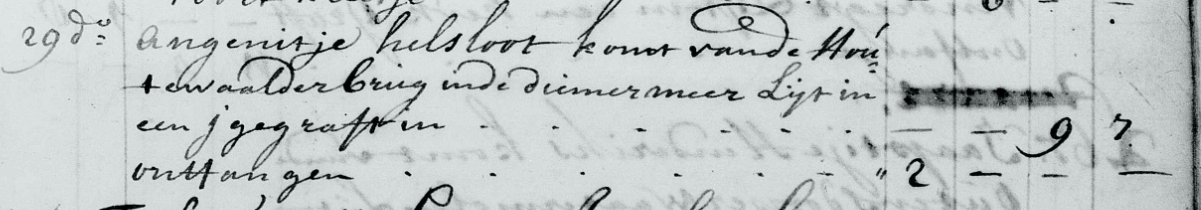 29 do: Angenitje helsloot komt vande Hou=
tewaalderbrug inde diemermeer Lijt in
een j gegraft in . . . . . . — — 9 7
onttangen . . . . . . " 2 — — —